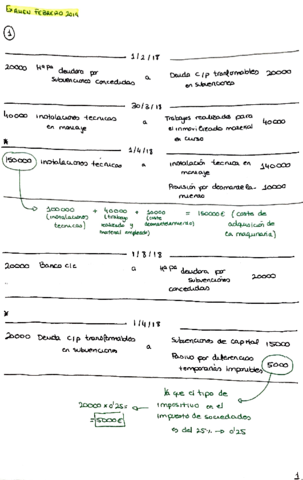 EXAMEN FEBRERO 2019
①
1/2/18
20000 Hª pª deudora por subvenciones concedidas a Deuda c/p transformables en subvenciones 20000
30/3/18
40000 instalaciones técnicas en montaje a Trabajos realizados para el inmovilizado material en curso 40000
* 1/4/18
150000 instalaciones técnicas a instalación técnica en montaje 140000
Provisión por desmantelamiento 10000
100000 (instalaciones técnicas) + 40000 (trabajo realizado y material empleado) + 10000 (coste desmantelamiento) = 150000€ (coste de adquisición de la maquinaria)
1/8/18
20000 Banco c/c a Hª pª deudora por subvenciones concedidas 20000
* 1/4/18
20000 Deuda c/p transformables en subvenciones a Subvenciones de capital 15000
Pasivo por diferencias temporarias imponibles 5000
20000 x 0'25 = = 5000€
ya que el tipo de impositivo en el impuesto de sociedades es del 25% → 0'25
1